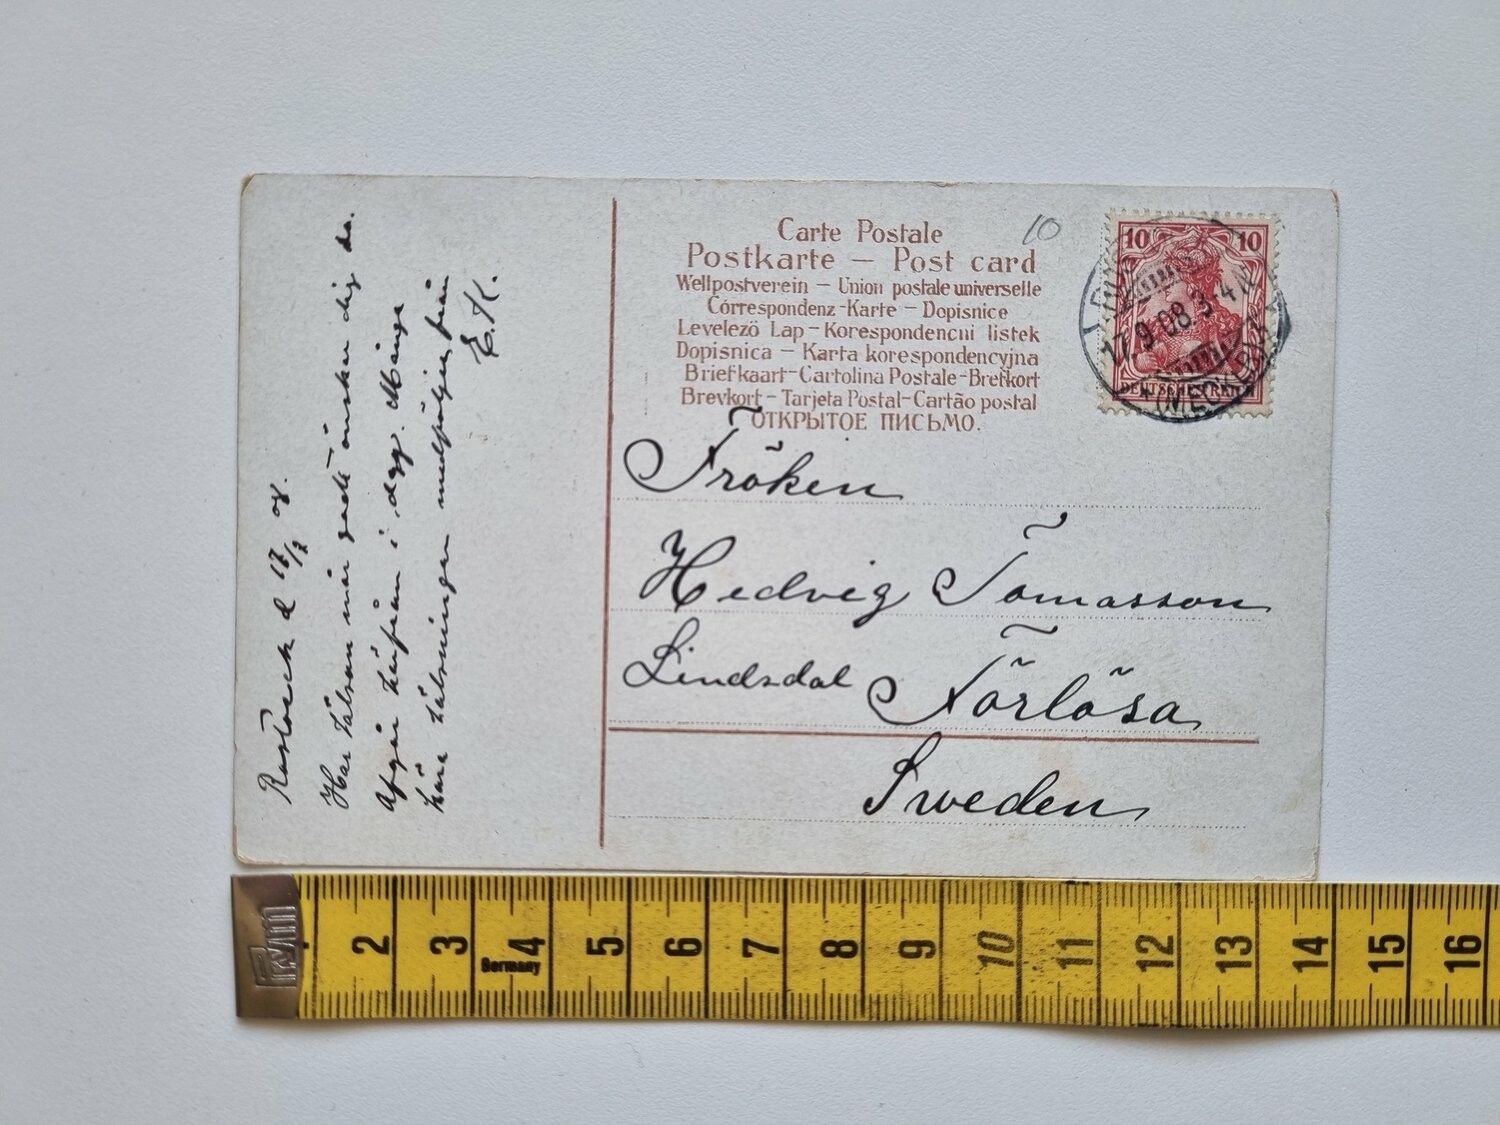 Carte Postale
Postkarte — Post card
Weltpostverein — Union postale universelle
Correspondenz-Karte — Dopisnice
Levelező Lap — Korespondencni listek
Dopisnica — Karta korespondencyjna
Briefkaart-Cartolina Postale-Brefkort
Brevkort — Tarjeta Postal-Cartão postal
ОТКРЫТОЕ ПИСЬМО.
10
10 10
DEUTSCHES REICH
17.9.08.3-4N
(MECKLB)
Fröken
Hedvig Tomasson
Lindsdal Förlösa
Sweden
Rostock d 17/9 08.
Har hälsan mår godt önskar dig da.
Afgår härifrån i dag. Många
kära hälsningar medföljer från
E. K.
Prym
2 3 4 5 6 7 8 9 10 11 12 13 14 15 16
Germany